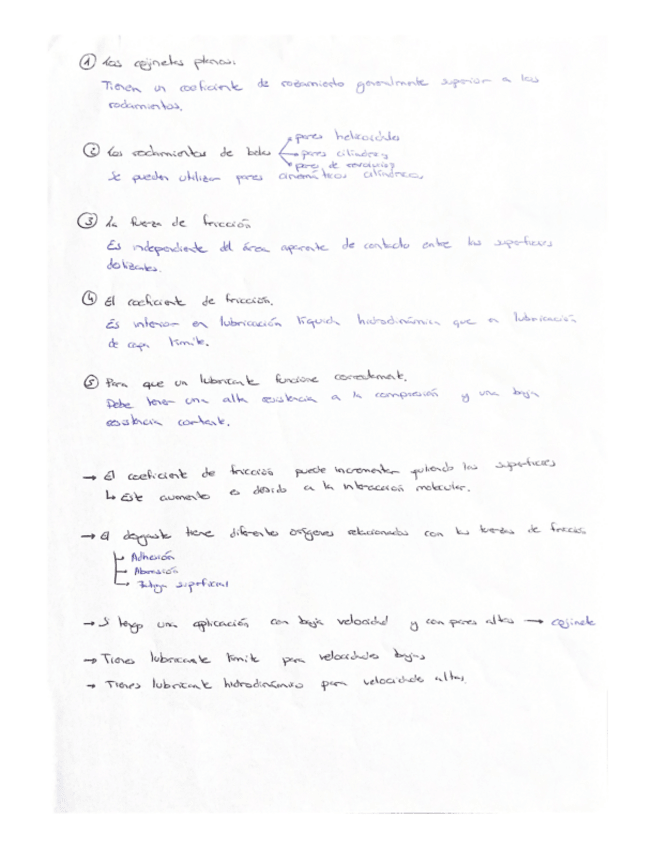 ① Los cojinetes planos.
Tienen un coeficiente de rozamiento generalmente superior a los
rodamientos.
② Los rodamientos de bolas
pares helicoidales
pares cilíndricos
pares de revolución
Se pueden utilizar pares cinemáticos cilíndricos
③ La fuerza de fricción
Es independiente del área aparente de contacto entre las superficies
deslizantes.
④ El coeficiente de fricción.
Es inferior en lubricación líquida hidrodinámica que en lubricación
de capa límite.
⑤ Para que un lubricante funcione correctamente.
Debe tener una alta resistencia a la compresión y una baja
resistencia cortante.
→ El coeficiente de fricción puede incrementar puliendo las superficies
↳ Este aumento es debido a la interacción molecular.
→ El desgaste tiene diferentes orígenes relacionados con las fuerzas de fricción
Adhesión
Abrasión
Fatiga superficial
→ Si tengo una aplicación con baja velocidad y con pares altos → cojinete
→ Tienes lubricante límite para velocidades bajas
→ Tienes lubricante hidrodinámico para velocidades altas.